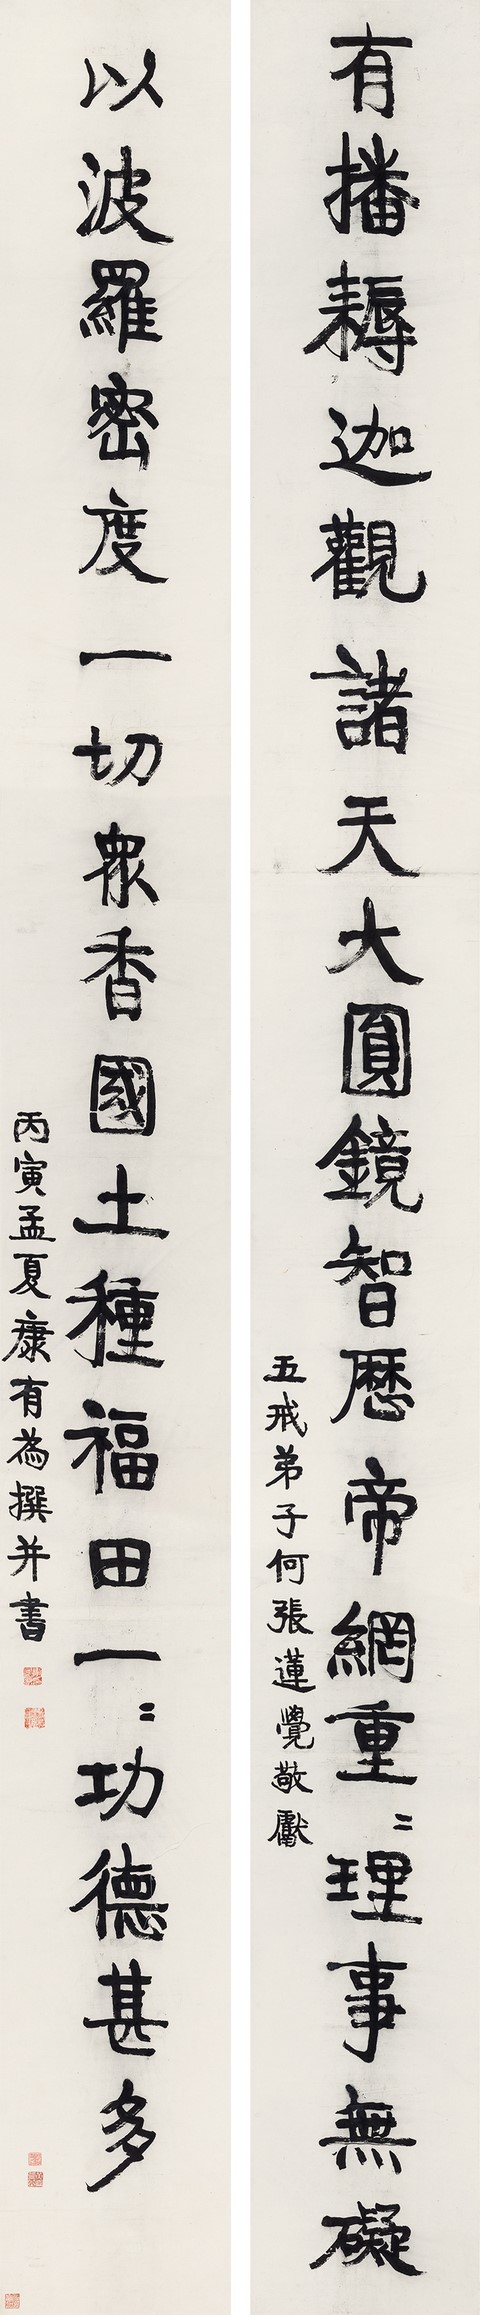 有播耨迦觀諸天大圓鏡智歷帝網重〻理事無礙
五戒弟子何張蓮覺敬獻
以波羅密度一切眾香國土種福田一〻功德甚多
丙寅孟夏康有為撰并書